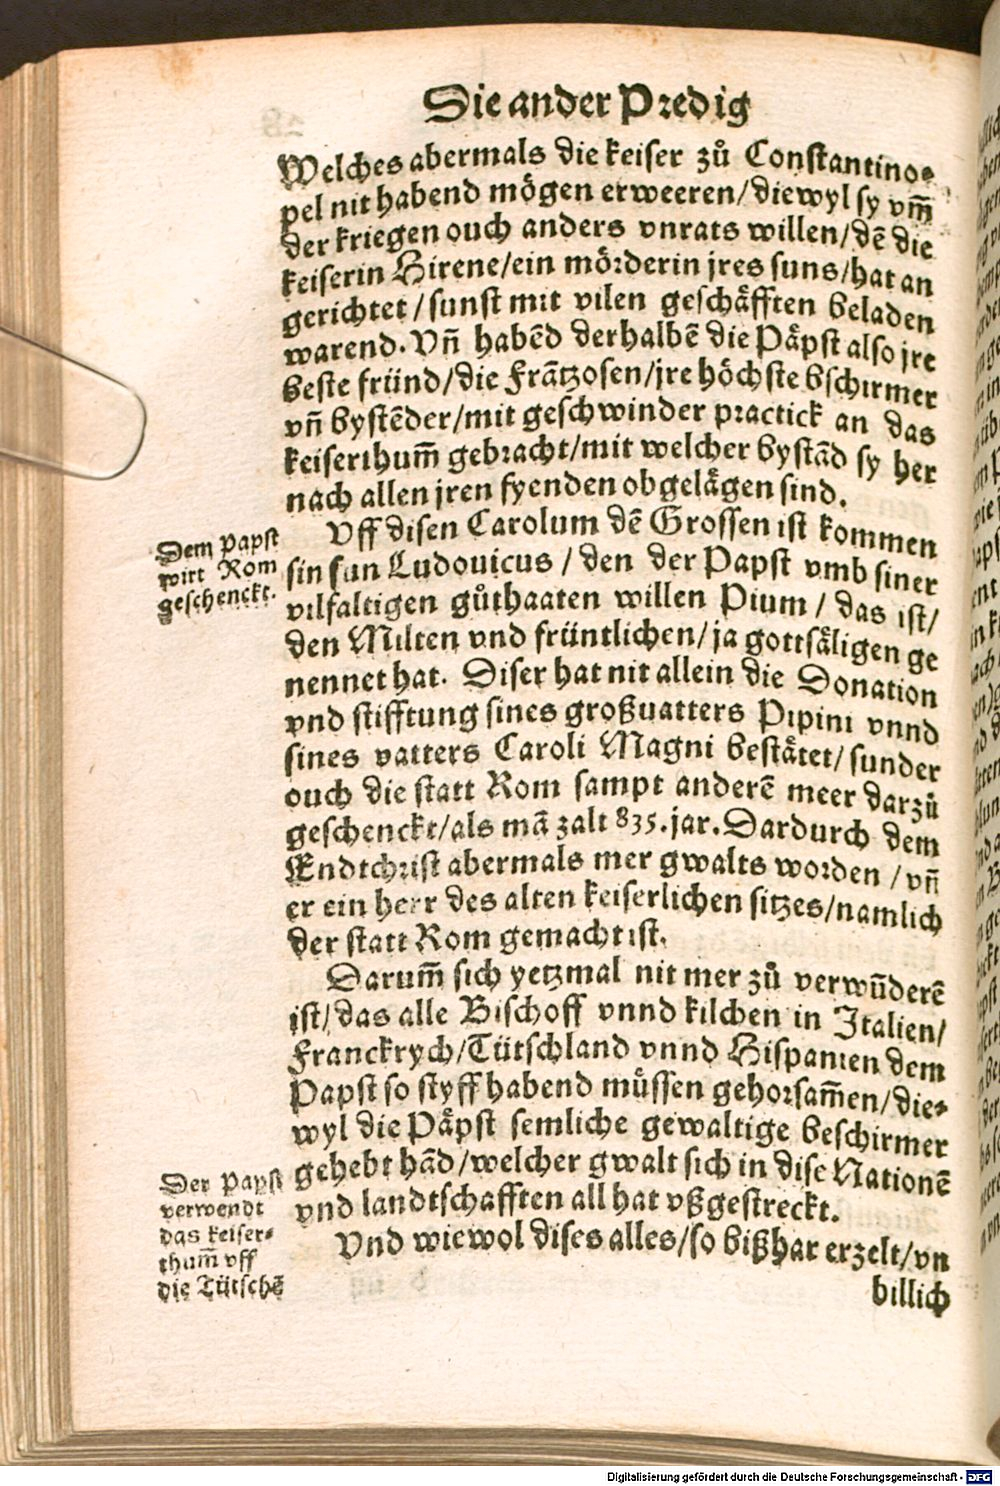 Die ander Predig
Welches abermals die keiser zů Constantino⸗
pel nit habend mögen erweeren/diewyl sy vm̃
der kriegen ouch anders vnrats willen/dẽ die
keiserin Hirene/ein mörderin jres suns/hat an
gerichtet/sunst mit vilen geschäfften beladen
warend. Vñ habẽd derhalbẽ die Päpst also jre
beste fründ/die Frãtzosen/jre höchste bschirmer
vñ bystẽder/mit geschwinder practick an das
keiserthum̃ gebracht/mit welcher bystãd sy her
nach allen jren fyenden obgelägen sind.
Dem Papst
wirt Rom
geschenckt.
Vff disen Carolum dẽ Grossen ist kommen
sin sun Ludouicus/den der Papst vmb siner
vilfaltigen gůthaaten willen Pium/das ist/
den Milten vnd früntlichen/ja gottsäligen ge
nennet hat. Diser hat nit allein die Donation
vnd stifftung sines großuatters Pipini vnnd
sines vatters Caroli Magni bestätet/sunder
ouch die statt Rom sampt anderẽ meer darzů
geschenckt/als mã zalt 835.jar. Dardurch dem
Endtchrist abermals mer gwalts worden/vñ
er ein herr des alten keiserlichen sitzes/namlich
der statt Rom gemacht ist.
Darum̃ sich yetzmal nit mer zů verwũderẽ
ist/das alle Bischoff vnnd kilchen in Italien/
Franckrych/Tütschland vnnd Hispanien dem
Papst so styff habend müssen gehorsam̃en/die⸗
wyl die Päpst semliche gewaltige beschirmer
gehebt hãd/welcher gwalt sich in dise Nationẽ
vnd landtschafften all hat vßgestreckt.
Der Papst
verwendt
das keiser⸗
thum̃ vff
die Tütschẽ
Vnd wiewol dises alles/so bißhar erzelt/vn
billich
Digitalisierung gefördert durch die Deutsche Forschungsgemeinschaft - DFG